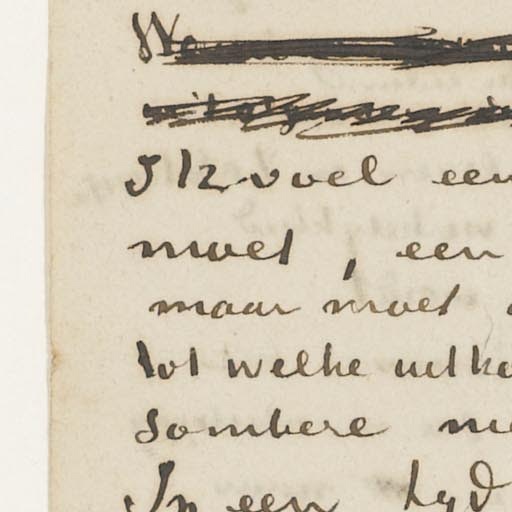 We
Ik voel een
moet, een
maar moet
tot welke uitko
sombere me
In een tyd